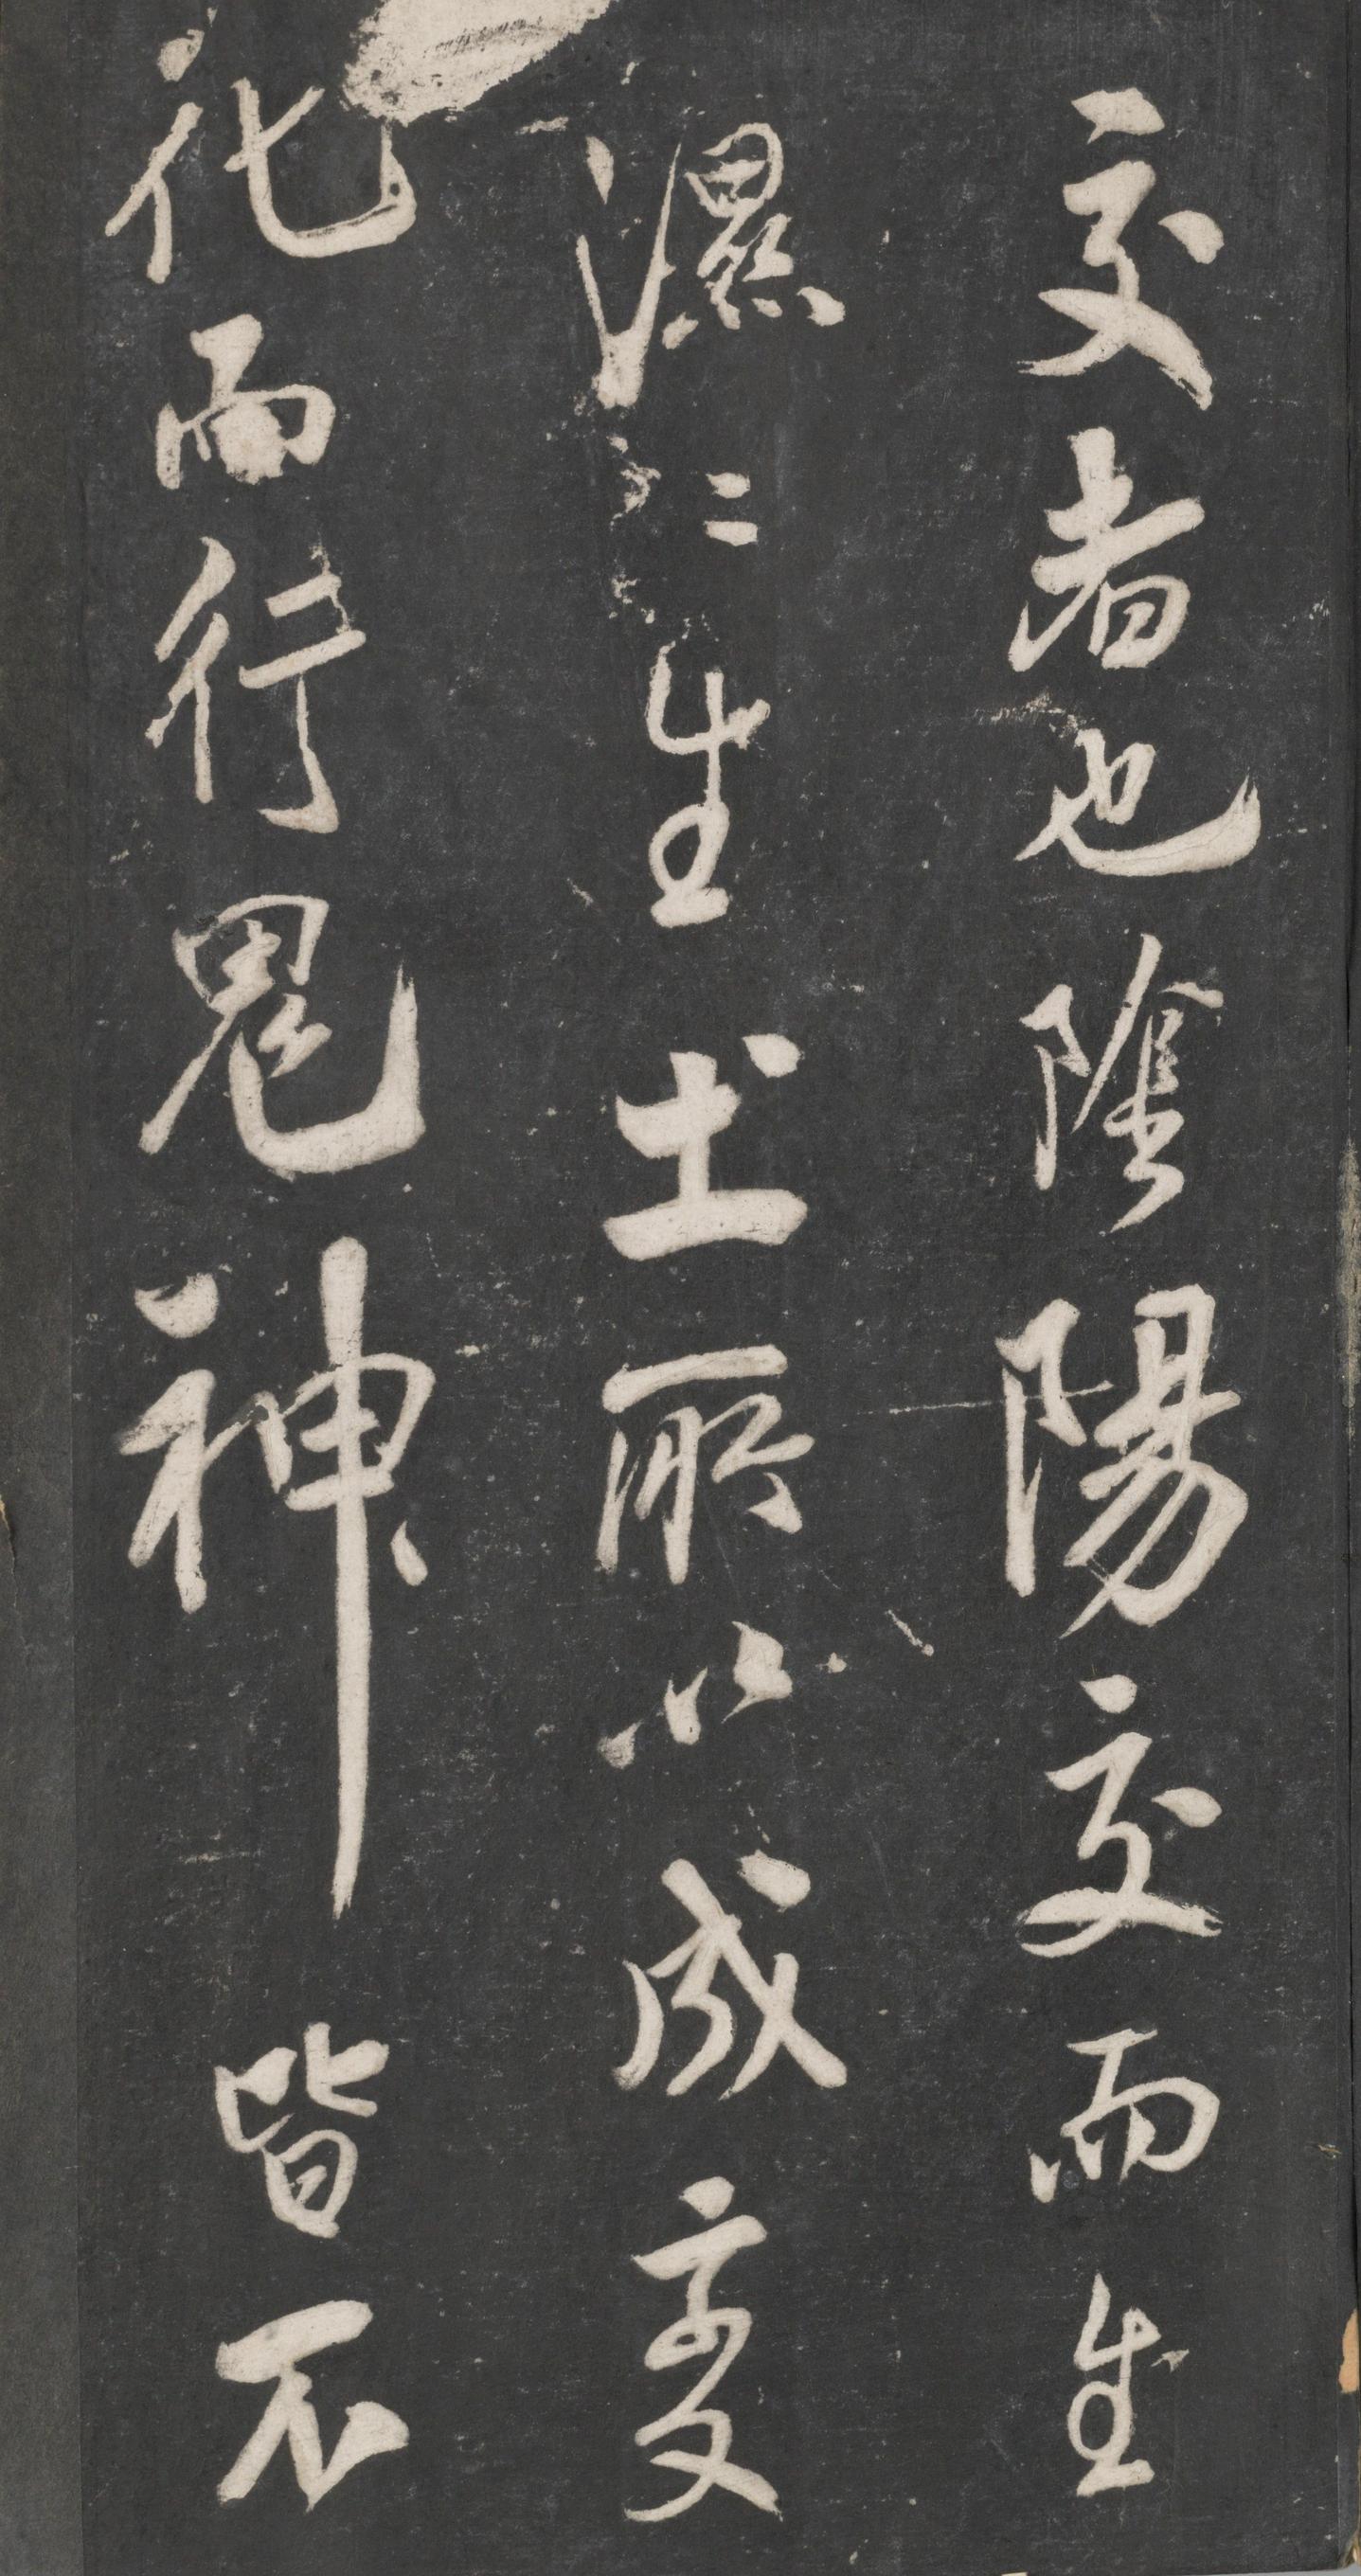 交者也陰陽交而生
濕〻生土所以成变
化而行鬼神皆不